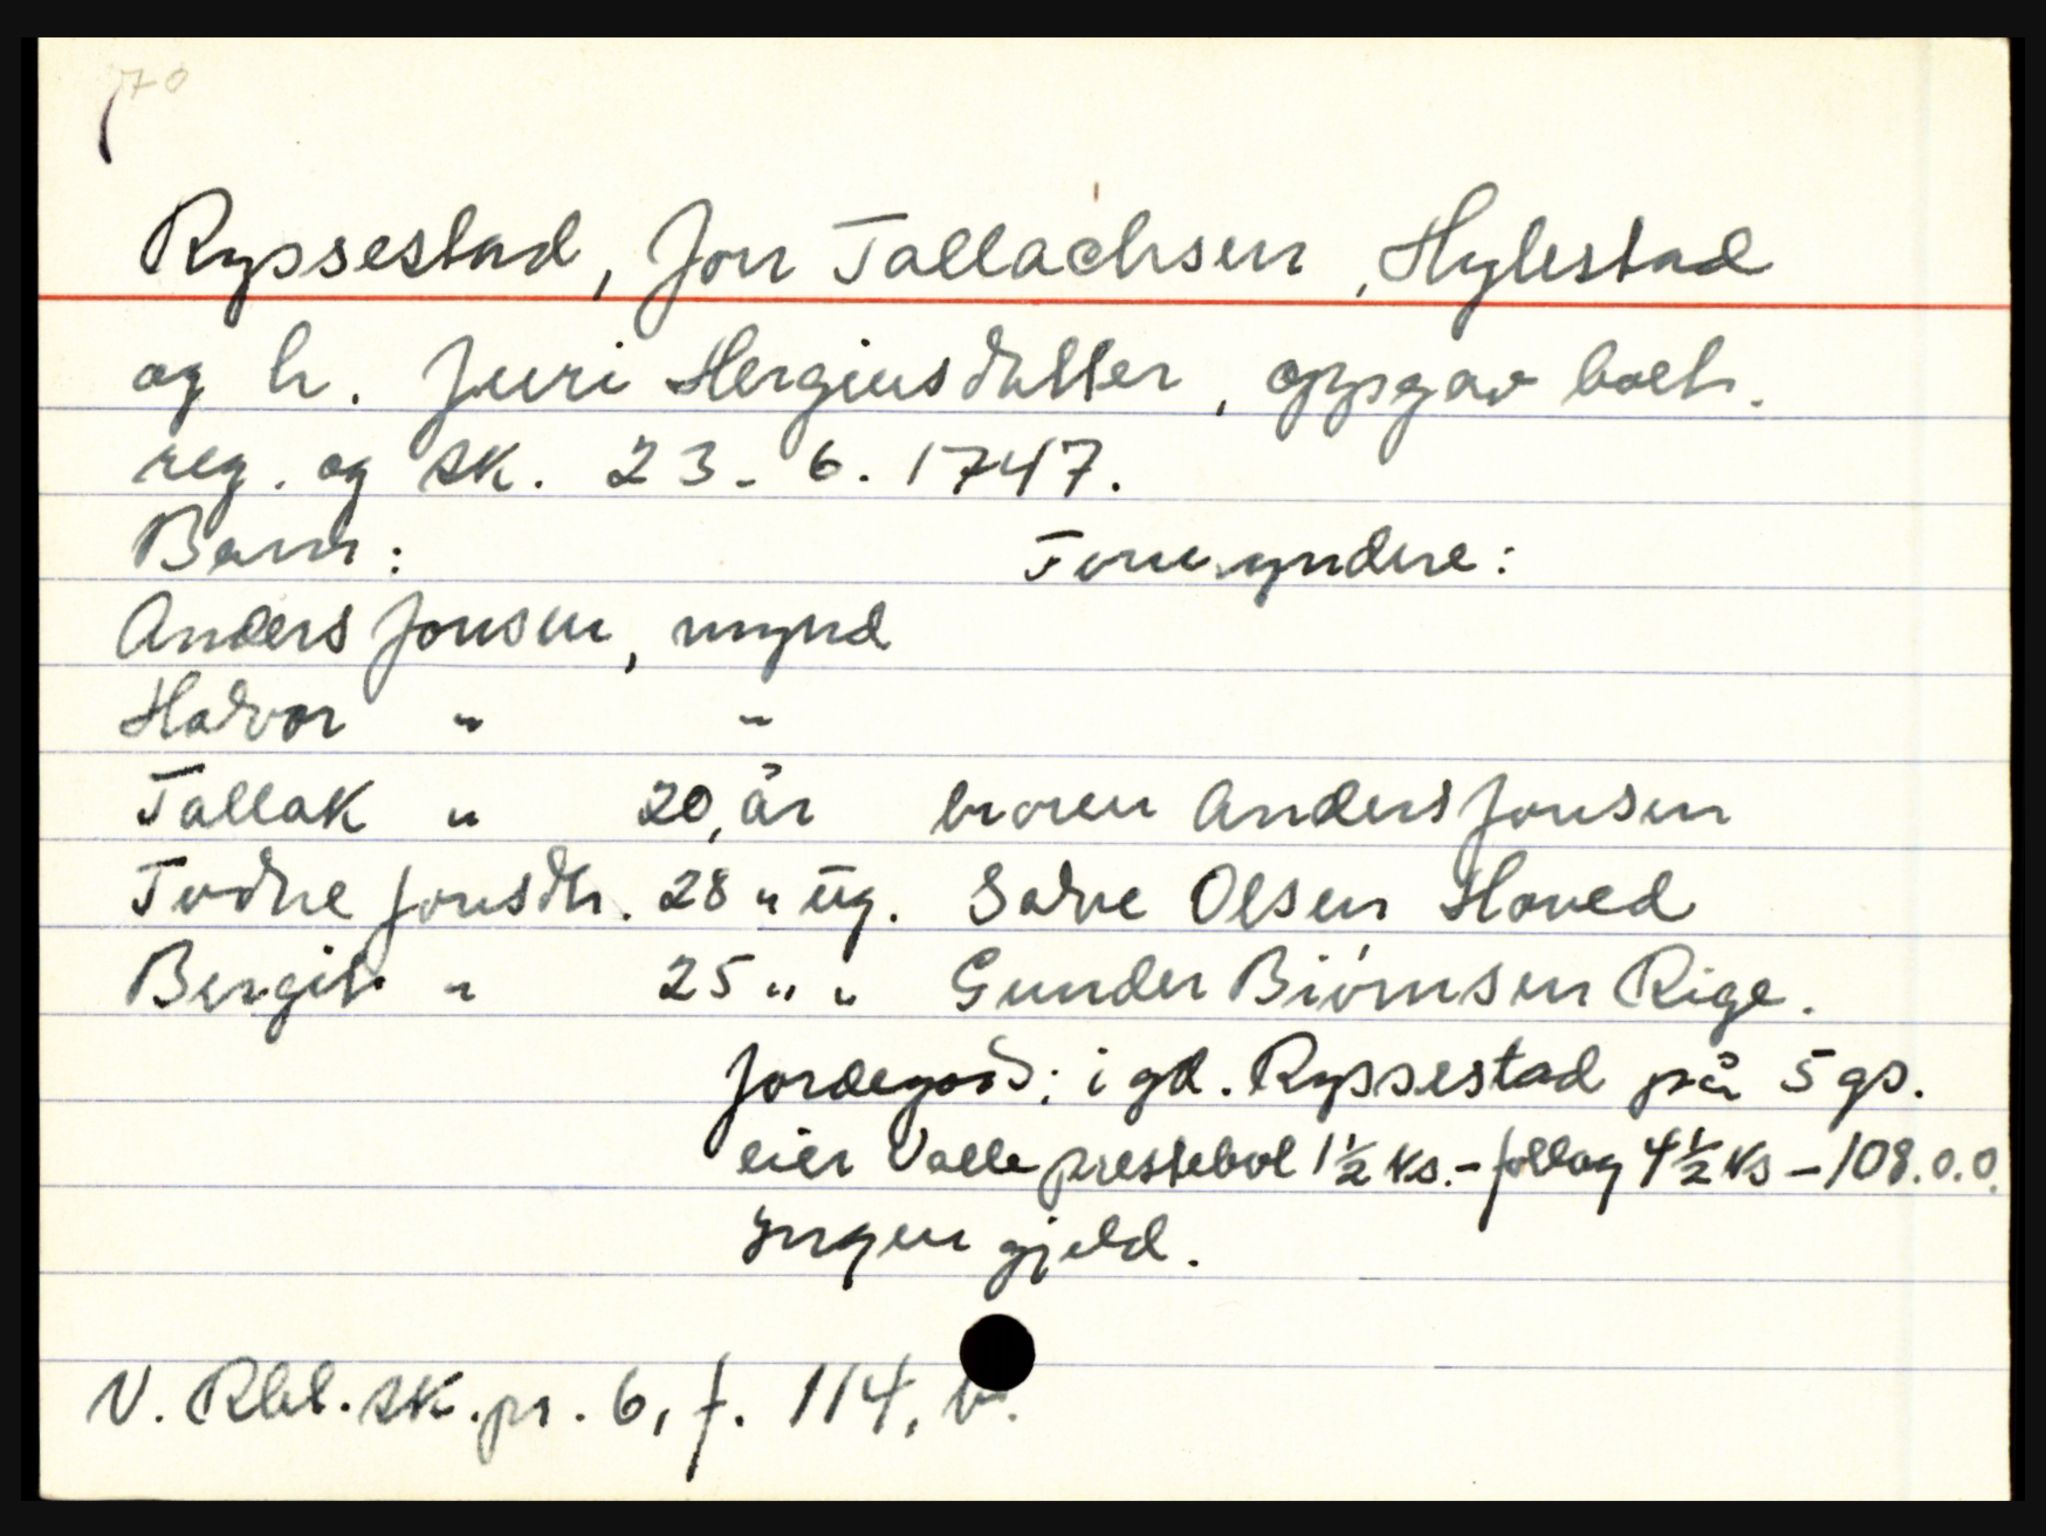 70
Ryssestad, Jon Tallachsen, Hylestad
og h. Juri Hergiusdatter, oppgav boet.
reg. og sk. 23. 6. 1747.
Barn: Formyndere:
Anders Jonsen, mynd
Halvor " "
Tallak " 20, år broren Anders Jonsen
Todne Jonsdtr. 28 " ug. Salve Olsen Hoved
Bergit " 25 " " Gunder Biørnsen Rige.
Jordegods: i gd. Ryssestad på 5 gs.
eier Valle prestebol 1½ ks. - 4½ ks - 108.0.0.
Ingen gjeld.
V. Rbl. sk. pr. 6, f. 114, b.